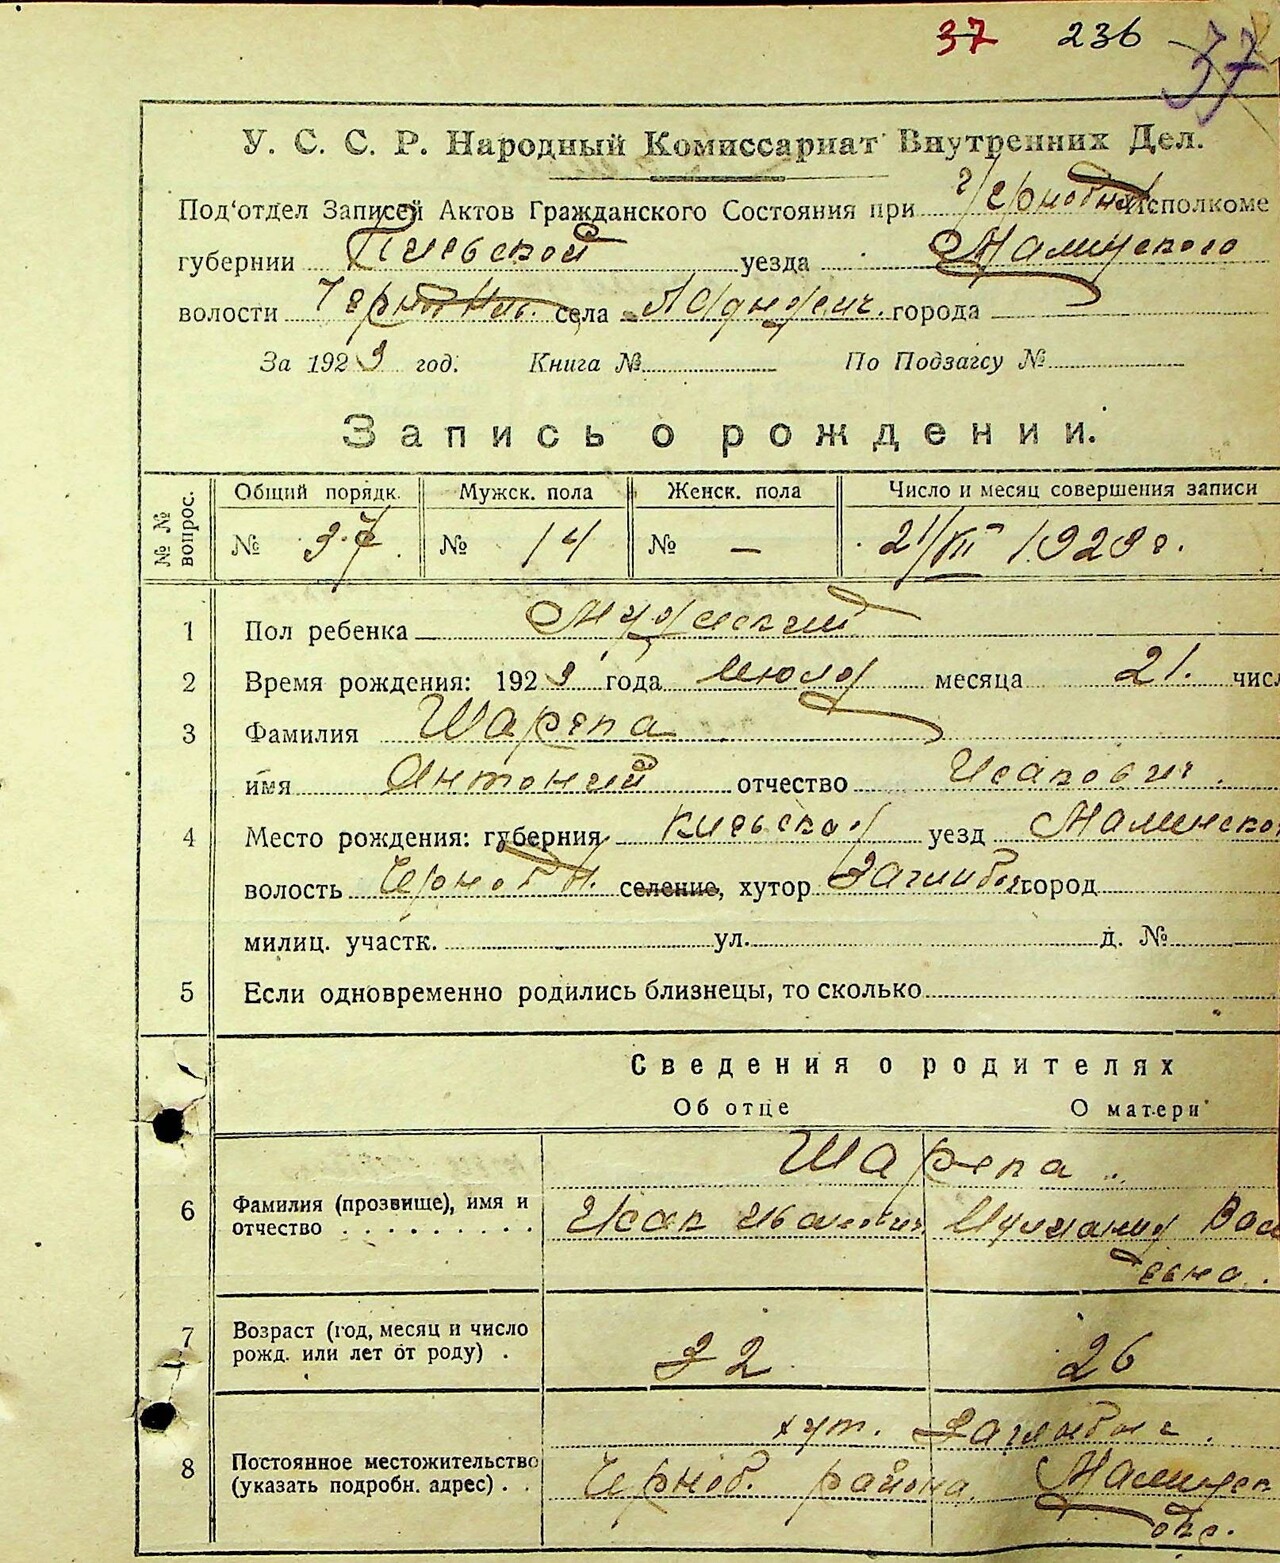 37 236 37
У. С. С. Р. Народный Комиссариат Внутренних Дел.
Под'отдел Записей Актов Гражданского Состояния при Исполкоме
губернии уезда Малинского
волости села города
За 1923 год. Книга № По Подзагсу №
Запись о рождении.
№ № вопрос. Общий порядк. Мужск. пола Женск. пола Число и месяц совершения записи
№ 37 № 14 № —
1 Пол ребенка Мужский
2 Время рождения: 1923 года Июля месяца 21. числ
3 Фамилия Шарепа
имя Антоний отчество Исакович.
4 Место рождения: губерния Киевская уезд
волость Черноб селение, хутор город
милиц. участк. ул. д. №
5 Если одновременно родились близнецы, то сколько
Сведения о родителях
Об отце О матери
Шарепа
6 Фамилия (прозвище), имя и Исак Иванович
отчество
7 Возраст (год, месяц и число
рожд. или лет от роду) . 32 26
хут.
8 Постоянное местожительство
(указать подробн. адрес) . . Черноб. района
окр.